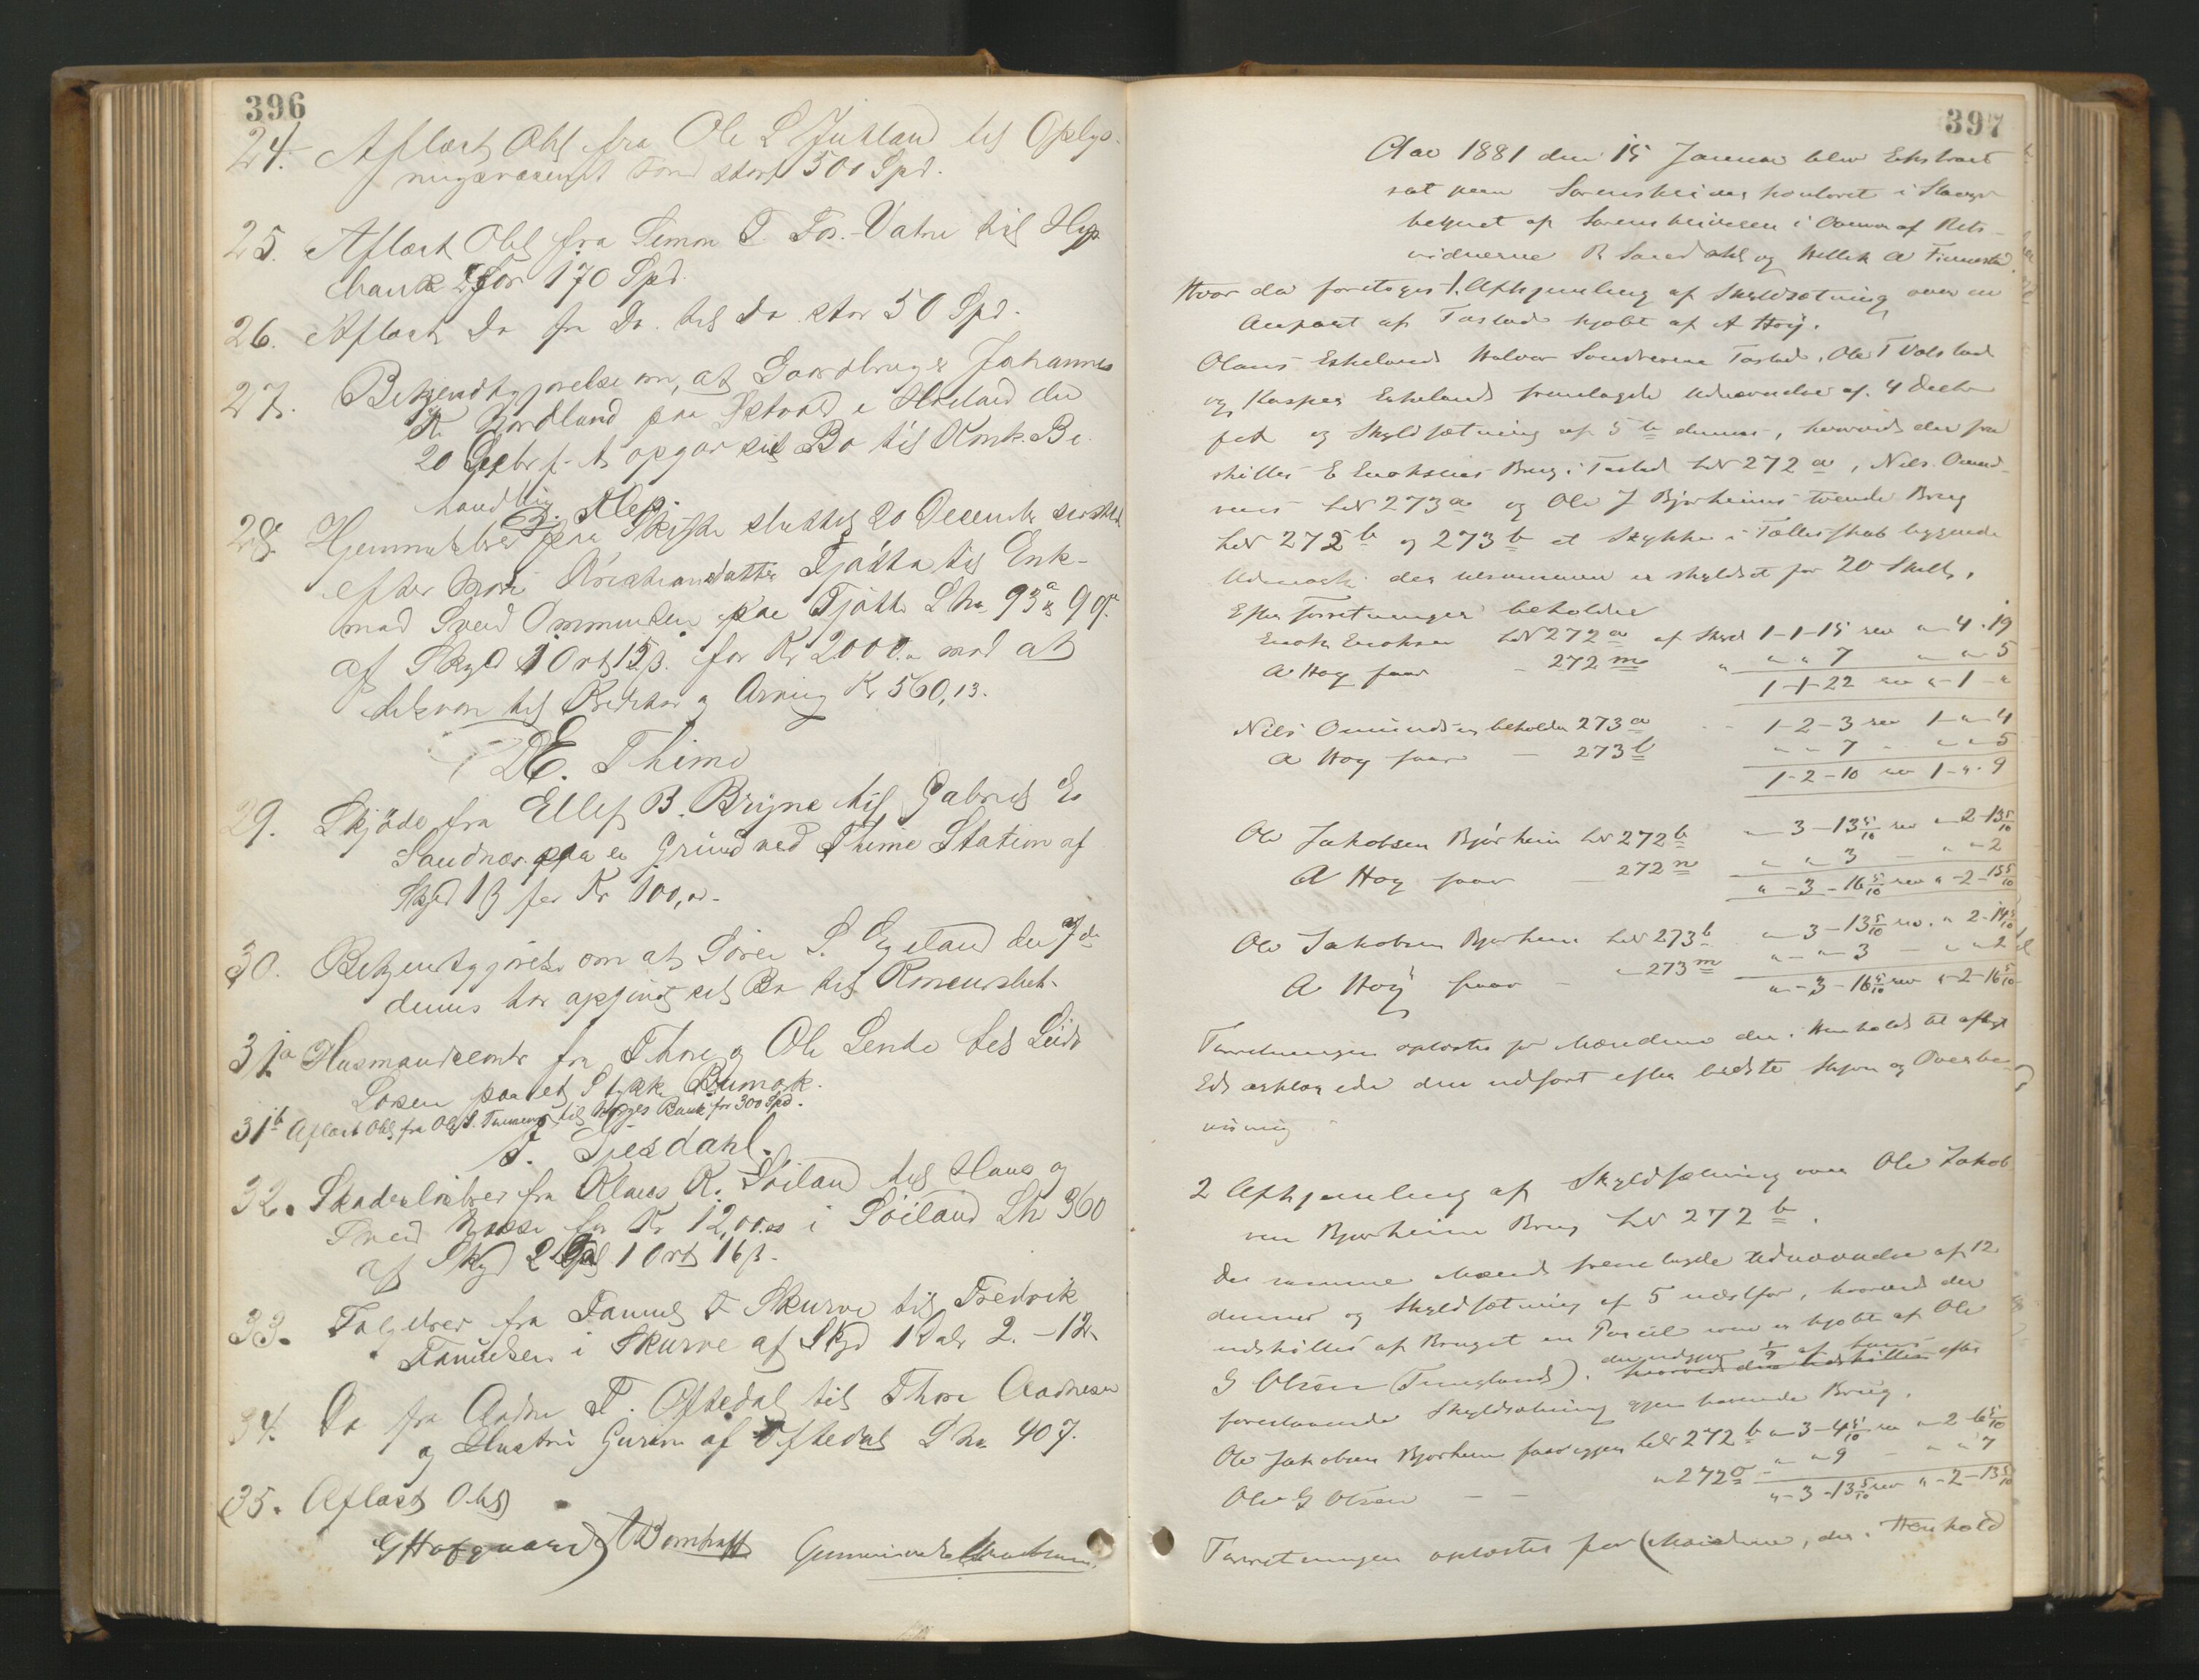 396
24. Aflæst Obl fra Ole L Jutland til Oplys-
ningsvæsenets Fond stort 500 Spd.
25. Aflæst Obl fra Simon T Fos-Vatne til Hyp
bank for 170 Spd.
26. Aflæst Do fra Do. til Do stor 50 Spd.
27. Bekjendtgjørelse om, at Gaardbruger Johannes
K. Nordland paa i den
20 Decbr f. A. opgav sit Bo til Konk. Be-
handling.
Klep.
28. Hjemmelsbrev fra Skifte sluttet 20 December sidstl.
efter Kristiansdatter Tjøtta til Enke-
mand Svend Ommundsen paa Tjøtta L No 93a & 99a
af Skyld 1 Ort 15 β. for Kr 2000.. mod at
til Kreditor og Arving Kr 560,13.
Thime
29. Skjøde fra Ellef B. Bryne til Gabriel E.
Sandnes paa en Grund ved Thime Station af
Skyld 1 β for Kr 100,00.-
30. Bekjentgjørelse om at Søren S. Egeland den 7de
dennes har opgivet sit Bo til Konkurs
31a Husmandskontr fra Thore og Ole Lende til
paa et Stykke Bumark.
31b Aflæst Obl. fra Ole S. til Norges Bank for 300 Spd.
Gjesdahl.
32. Skadesløsbrev fra Klaus K. Søiland til Hans og
Svend for Kr 1200.00 i Søiland L No 360
af Skyld 2 Spd 1 Ort 16 β.
33. Følgebrev fra Samuel T Skurve til Fredrik
Samuelsen i Skurve af Skyld 1 Dal 2.-12.
34. Do fra Aadne T. Oftedal til Thore Aadnesen
og Hustru Guren af Oftedal L No 407.
35. Aflæst Obl
G Hofgaard
397
Aar 1881 den 15 Januar blev Extraret
sat paa Sorenskriverkontoret i Stavgr
betjent af Sorenskriveren i Overvær af Rets-
vidnerne R Sandahl og
Hvor da foretoges 1. Afhjemling af Skyldsætning over en
Anpart af Tastad kjøbt af A Høy.
Olaus Eskeland Halvor Tastad, Ole T
og Kasper Eskeland fremlagde Udnævnelse af 4 Decbr
og Skyldsætning af 5te dennes, hvorved der fra
skilles E Enoksens Brug i Tastad LNr 272 a, Nils Omund-
sens LNr 273 a og Ole J Bjørheims tvende Brug
LNr 272 b og 273 b et Stykke i Fællesskab liggende
Udmark der tilsammen er skyldsat for 20 Skill.
Efter Forretningen beholder
Enok Enoksen LNr 272 a af Skyld 1-1-15 rev „-4-19
A Høy faar - 272 m „ „ „ 7 „ „ „ 5
1-1-22 rev „-1-„
Nils Omundsen beholder 273 a 1-2-3 rev 1-„-4
A Høy faar - 273 l „ „ 7 - „ „ 5
1-2-10 rev 1-„-9
Ole Jakobsen Bjørheim LNr 272 b „-3-13 5/10 rev „-2-13 5/10
A Høy faar - 272 n „ „ 3 - „ „ 2
„-3-16 5/10 rev „-2-15 5/10
Ole Jakobsen Bjørheim LNr 273 b „-3-13 5/10 rev. „ 2-14 5/10
A Høy faar - 273 m „-„-3 - „ „ 2
„-3-16 5/10 rev „-2-16 5/10
Forretningen oplæstes for Mændene der i Henhold til aflagt
Ed erklærede den udført efter bedste Skjøn og Overbe-
visning
2 Afhjemling af Skyldsætning over Ole Jakob
sen Bjørheims Brug LNr 272 b.
De samme Mænd fremlagde Udnævnelse af 12
dennes og Skyldsætning af 5 næstfør, hvorved der
udskilles af Bruget en Parcel som er kjøbt af Ole
G Olsen (Tunglands). der udgjør 1/9 af hans efter
forestaaende Skyldsætning igjen havende Brug.
Ole Jakobsen Bjørheim faar igjen LNr 272 b „-3-4 5/10 rev „-2-6 5/10
Ole G Olsen - - „ 272 o - „ „ 9 - „ „ 7
„-3-13 5/10 rev „-2-13 5/10
Forretningen oplæstes for Mændene, der i Henhold